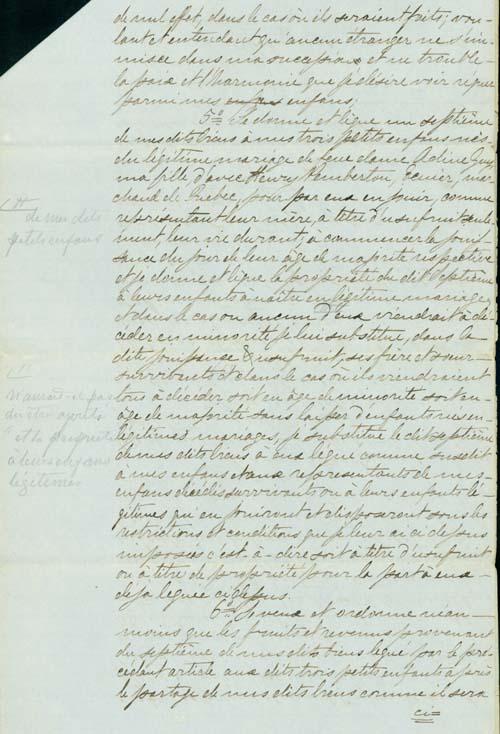 de nul effet, dans le cas où ils seraient faits; vou-
lant et entendant qu'aucun étranger ne s'im-
misce dans ma succession et ne trouble
la paix et l'harmonie que je désire voir régner
parmi mes enfans.
5o Je donne et lègue un septième
de mes dits biens à mes trois petits enfans nés
du légitime mariage de feue dame Adine Guy
ma fille d'avec Henry Pemberton, écuier, mar-
chand de Québec, pour par eux en jouir, comme
représentant leur mère, à titre d'usufruit seule-
ment, leur vie durant, à commencer la jouis-
sance du jour de leur âge de majorité respective
et je donne et lègue la propriété du dit septième
à leurs enfants à naître en légitime mariage,
et dans le cas ou aucun d'eux viendrait à dé-
céder en minorité, je lui substitue, dans la
dite jouissance & usufruit, ses frère et soeur
survivants et dans le cas où ils viendraient
tous à décéder, soit en âge de minorité soit en
âge de majorité sans laisser d'enfants nés en
légitimes mariages, je substitue le dit septième
de mes dits biens à eux légué comme susdit
à mes enfans et aux représentants de mes
enfans décédés survivants ou à leurs enfants lé-
gitimes qui en jouiront et disposeront sous les
restrictions et conditions que je leur ai ci dessus
imposées c'est-à-dire soit à titre d'usufruit
ou à titre de propriété pour la part à eux
déjà léguée ci dessus.
6o Je veux et ordonne néan-
moins que les fruits et revenus provenant
du septième de mes dits biens légué par le pré-
cédant article aux dits trois petits enfants après
le partage de mes dits biens comme il sera
ci-
de mes dits
petits enfans
n'aurait
et la propriété
à leurs enfans
légitimes